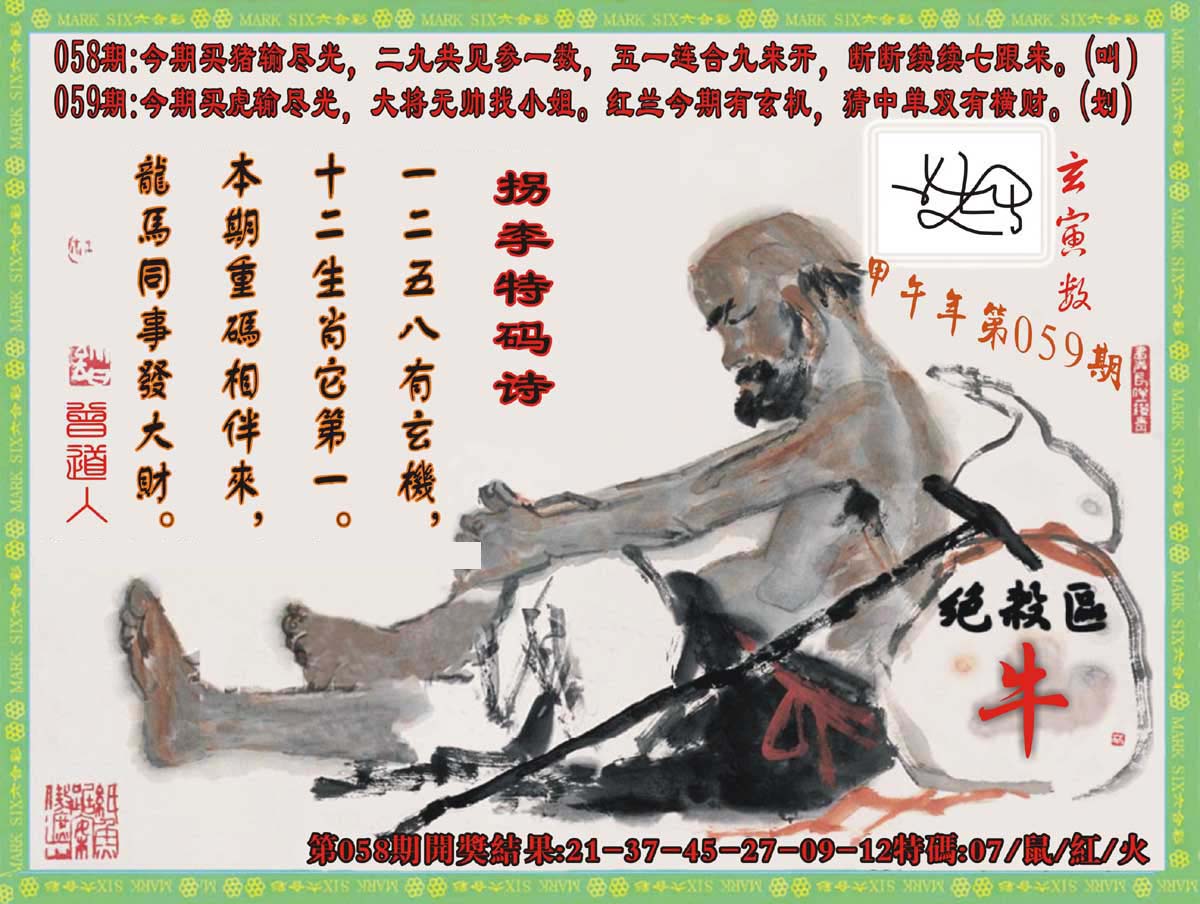 MARK SIX六合彩 MARK SIX六合彩 MARK SIX六合彩 MARK SIX六合彩 MARK SIX六合彩 MARK SIX六合彩
058期:今期买猪输尽光，二九共见参一数，五一连合九来开，断断续续七跟来。(叫)
059期:今期买虎输尽光，大将无帅找小姐。红兰今期有玄机，猜中单双有横财。(划)
玄寅数
甲午年第059期
拐李特码诗
一二五八有玄機，
十二生肖它第一。
本期重碼相伴來，
龍馬同事發大財。
曾道人
绝殺區
牛
第058期開獎結果:21-37-45-27-09-12特碼:07/鼠/紅/火